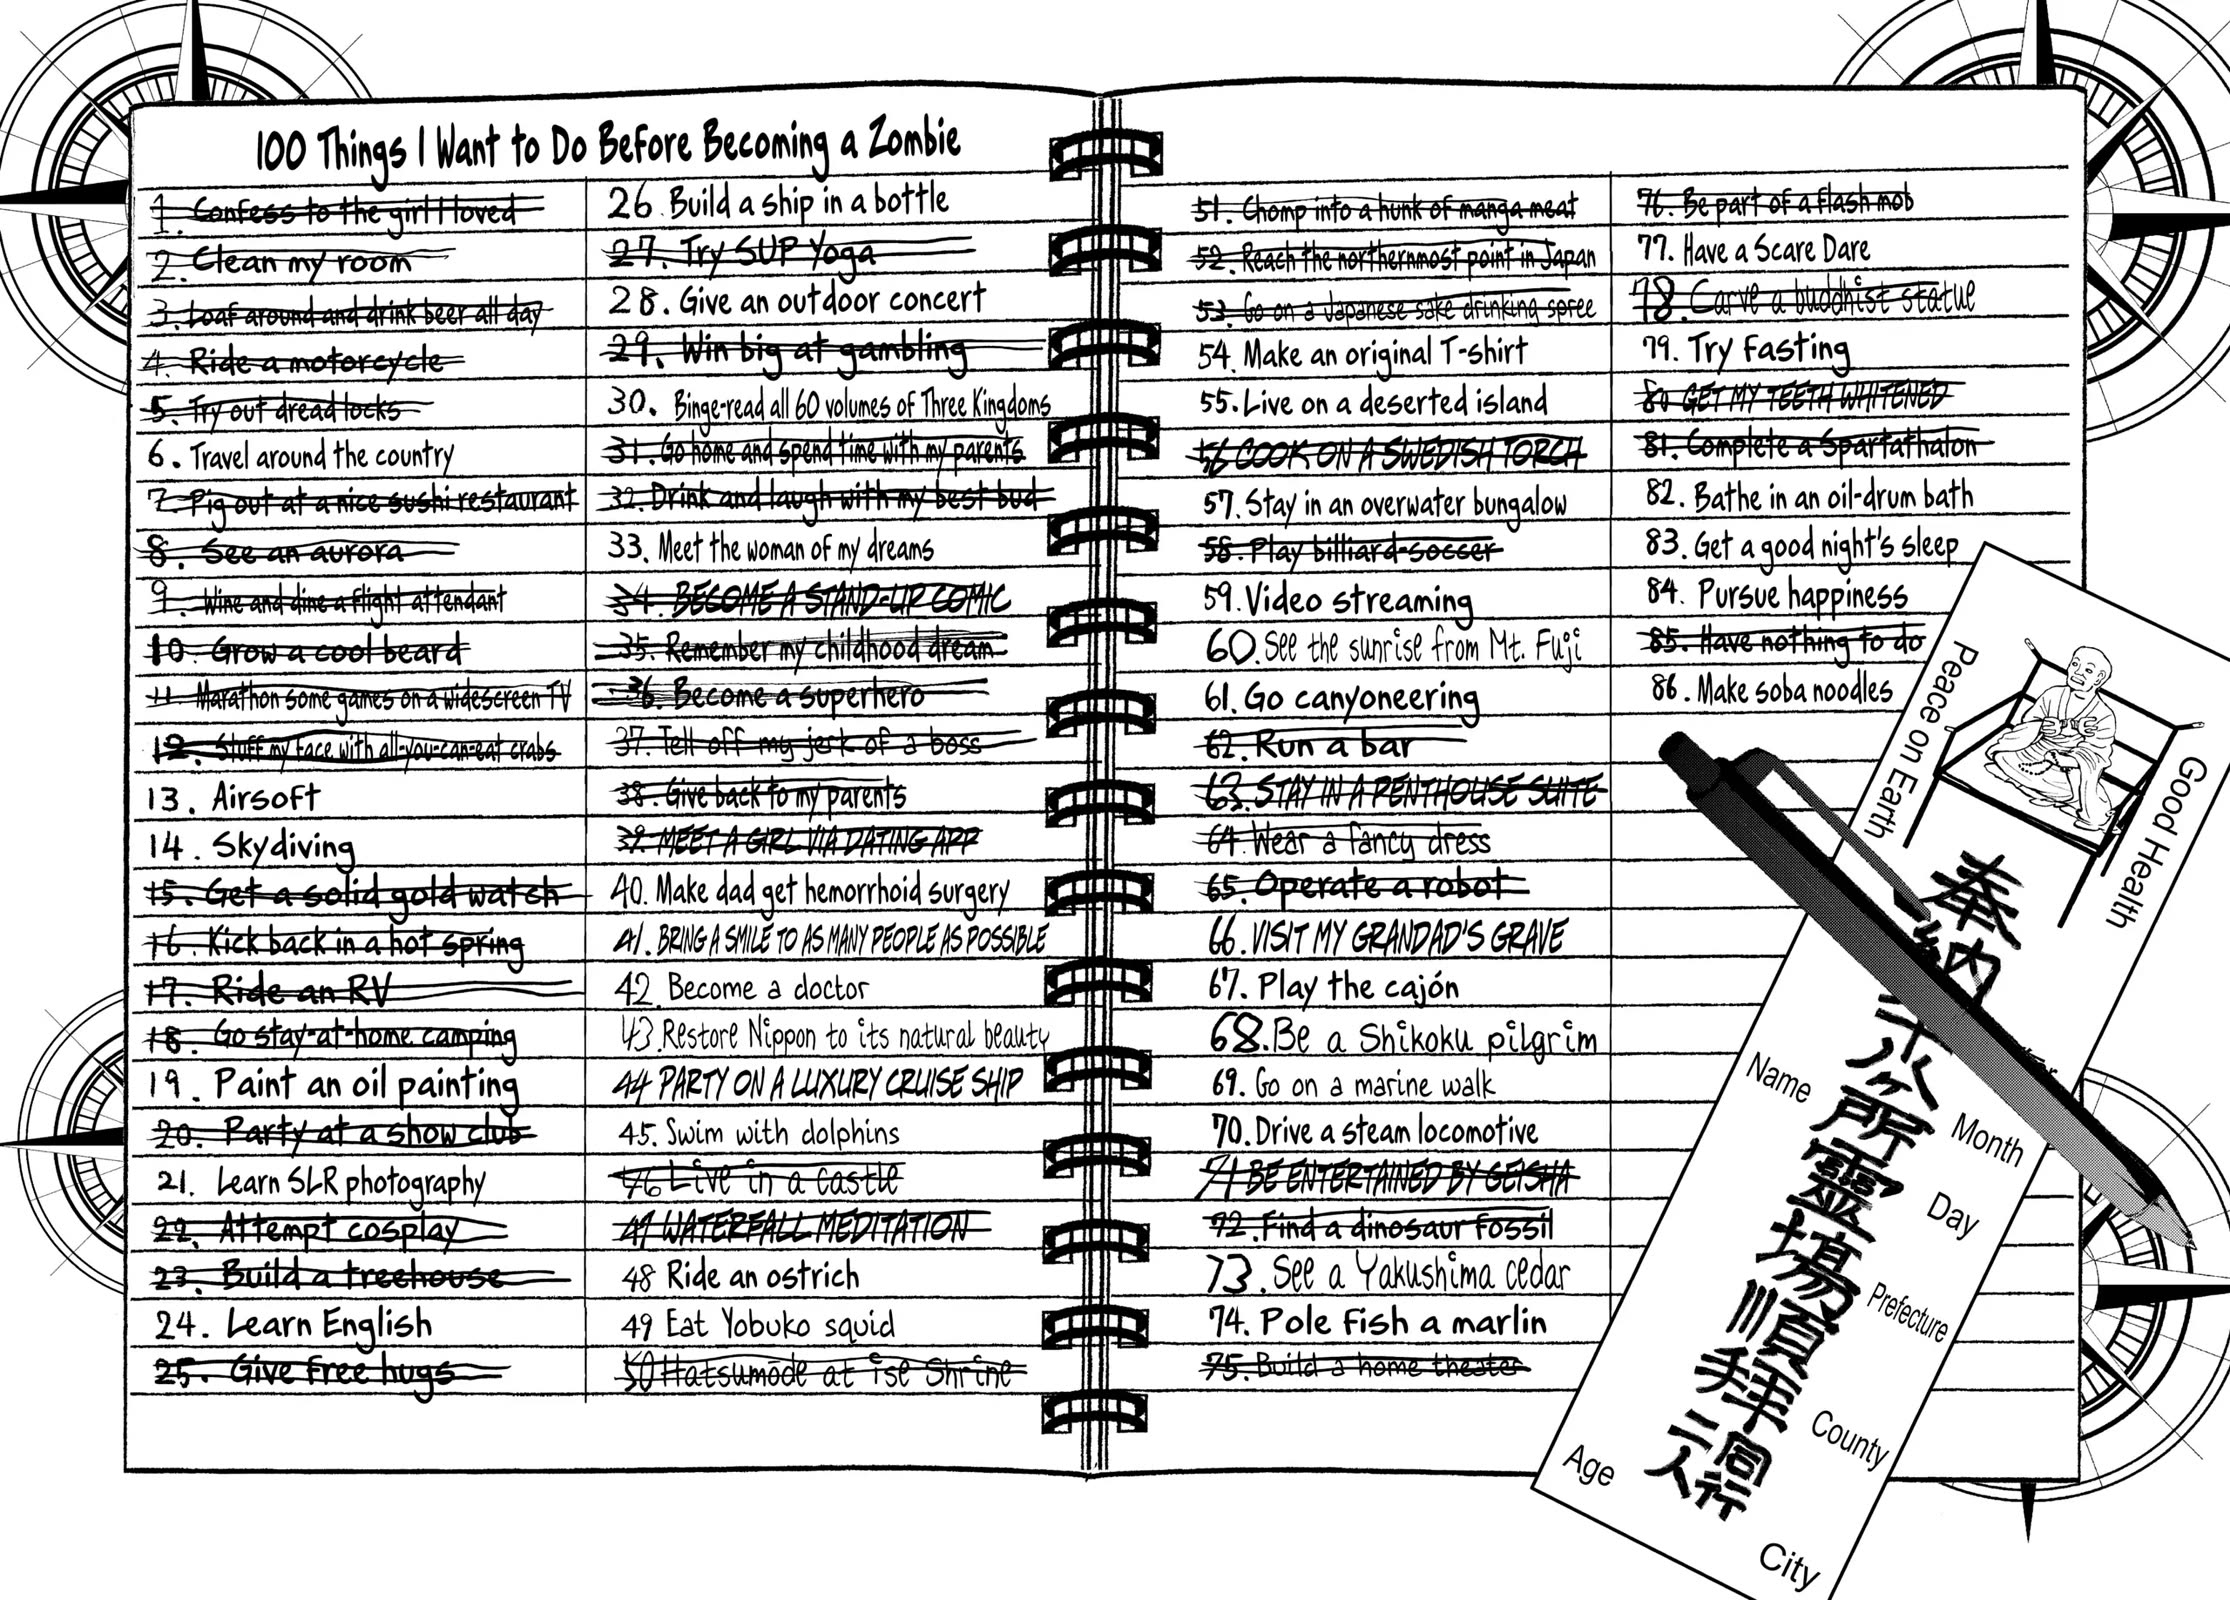 100 Things I Want to Do Before Becoming a Zombie
1. Confess to the girl I loved
2. Clean my room
3. Loaf around and drink beer all day
4. Ride a motorcycle
5. Try out dreadlocks
6. Travel around the country
7. Pig out at a nice sushi restaurant
8. See an aurora
9. Wine and dine a flight attendant
10. Grow a cool beard
11. Marathon some games on a widescreen TV
12. Stuff my face with all-you-can-eat crabs
13. Airsoft
14. Skydiving
15. Get a solid gold watch
16. Kick back in a hot spring
17. Ride an RV
18. Go stay-at-home camping
19. Paint an oil painting
20. Party at a show club
21. Learn SLR photography
22. Attempt cosplay
23. Build a treehouse
24. Learn English
25. Give free hugs
26. Build a ship in a bottle
27. Try SUP Yoga
28. Give an outdoor concert
29. Win big at gambling
30. Binge-read all 60 volumes of Three Kingdoms
31. Go home and spend time with my parents
32. Drink and laugh with my best bud
33. Meet the woman of my dreams
34. BECOME A STAND-UP COMIC
35. Remember my childhood dream
36. Become a superhero
37. Tell off my jerk of a boss
38. Give back to my parents
39. MEET A GIRL VIA DATING APP
40. Make dad get hemorrhoid surgery
41. BRING A SMILE TO AS MANY PEOPLE AS POSSIBLE
42. Become a doctor
43. Restore Nippon to its natural beauty
44 PARTY ON A LUXURY CRUISE SHIP
45. Swim with dolphins
46 Live in a castle
47 WATERFALL MEDITATION
48 Ride an ostrich
49 Eat Yobuko squid
50 Hatsumōde at Ise Shrine
51. Chomp into a hunk of manga meat
52. Reach the northernmost point in Japan
53. Go on a Japanese sake drinking spree
54. Make an original T-shirt
55. Live on a deserted island
56 COOK ON A SWEDISH TORCH
57. Stay in an overwater bungalow
58. Play billiard-soccer
59. Video streaming
60. See the sunrise from Mt. Fuji
61. Go canyoneering
62. Run a bar
63. STAY IN A PENTHOUSE SUITE
64. Wear a fancy dress
65. Operate a robot
66. VISIT MY GRANDAD'S GRAVE
67. Play the cajón
68. Be a Shikoku pilgrim
69. Go on a marine walk
70. Drive a steam locomotive
71 BE ENTERTAINED BY GEISHA
72. Find a dinosaur fossil
73. See a Yakushima cedar
74. Pole fish a marlin
75. Build a home theater
76. Be part of a flash mob
77. Have a Scare Dare
78. Carve a buddhist statue
79. Try fasting
80 GET MY TEETH WHITENED
81. Complete a Spartathalon
82. Bathe in an oil-drum bath
83. Get a good night's sleep
84. Pursue happiness
85. Have nothing to do
86. Make soba noodles
Peace on Earth
Good Health
奉納
八ヶ所霊場順拝
同行二人
Name
Month
Day
Prefecture
County
Age
City